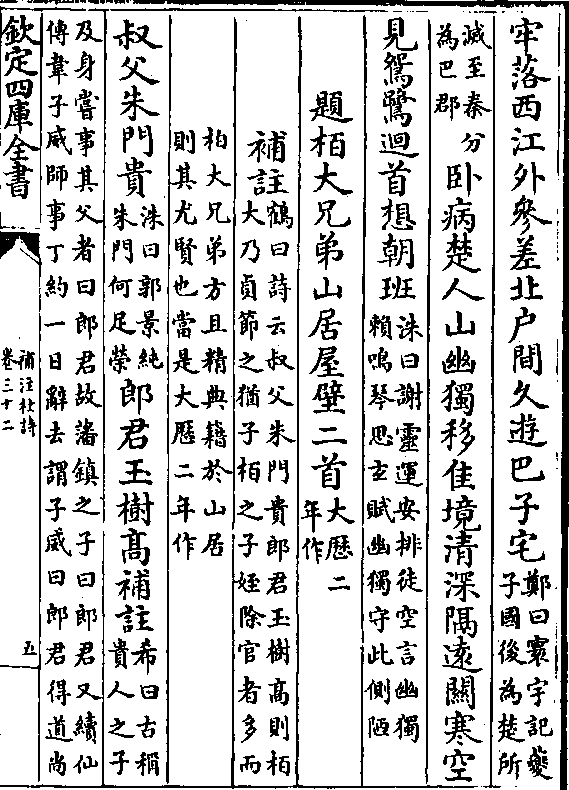 牢落西江外參差北户間久遊巴子宅鄭曰寰宇記夔子國後為楚所
滅至秦分為巴郡卧病楚人山幽獨移佳境清深隔遠關寒空
見鴛鷺迴首想朝班洙曰謝靈運安排徒空言幽獨賴鳴琴思玄賦幽獨守此側陋
題栢大兄弟山居屋壁二首大厯二年作
補註鶴曰詩云叔父朱門貴郎君玉樹髙則栢大乃貞節之猶子栢之子姪除官者多而
柏大兄弟方且精典籍於山居則其尤賢也當是大厯二年作
叔父朱門貴洙曰郭景純朱門何足榮郎君玉樹髙補註希曰古稱貴人之子
及身嘗事其父者曰郎君故藩鎮之子曰郎君又續仙傳韋子威師事丁約一日辭去謂子威曰郎君得道尚
欽定四庫全書
補注杜詩
卷三十二
五